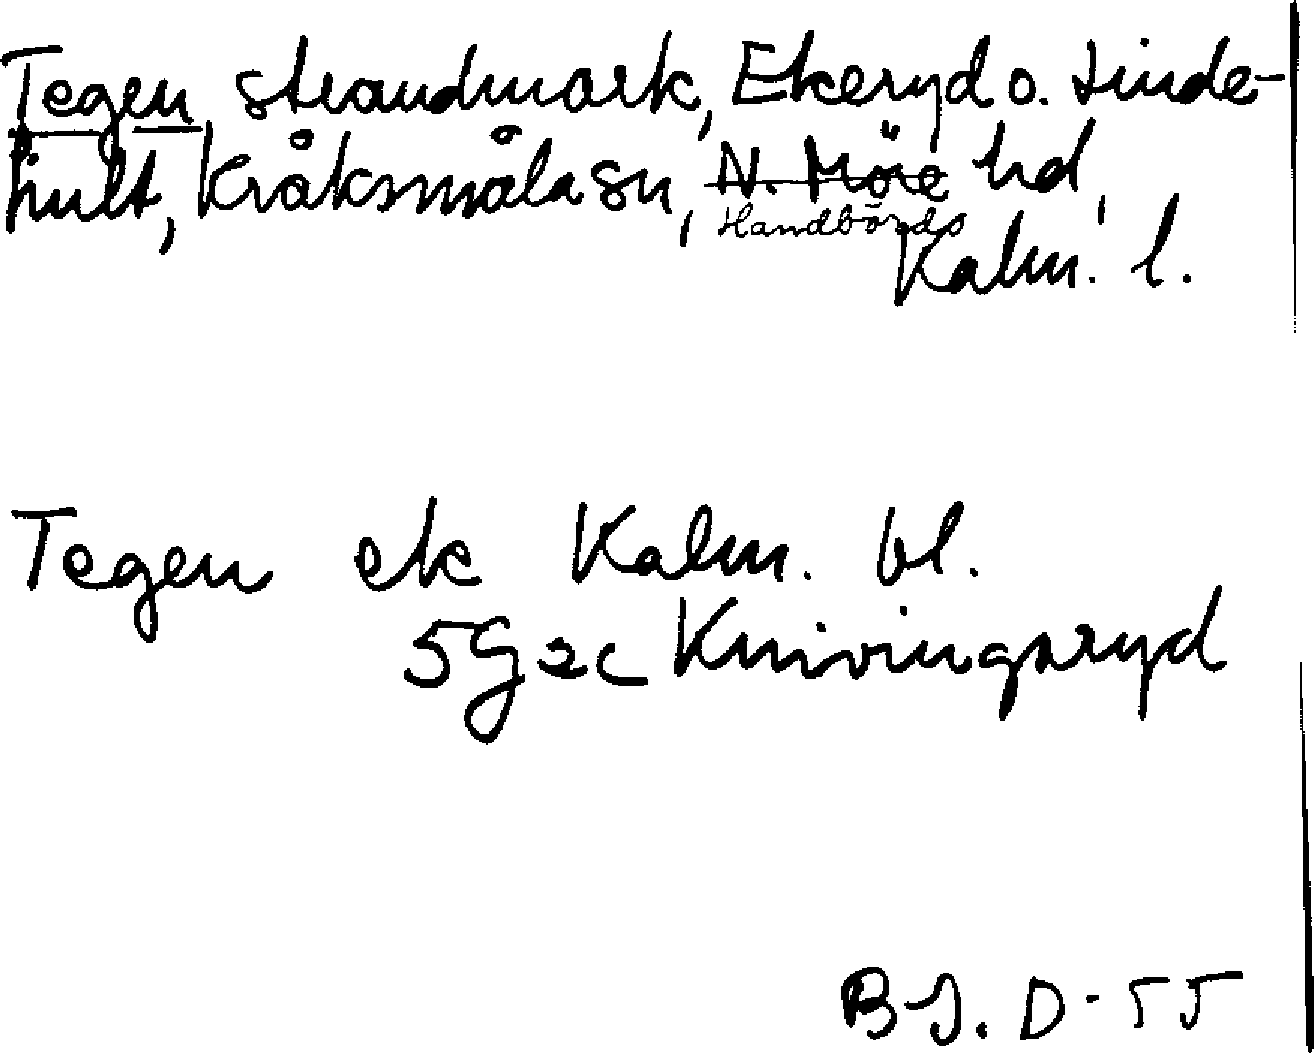 Tegen strandmark, Ekeryd o. Linde-
hult, Kråksmåla sn, N. Möre hd,
Handbörds
Kalm. l.
Tegen ek Kalm. bl.
5G2c Knivingaryd
B-J. D-55